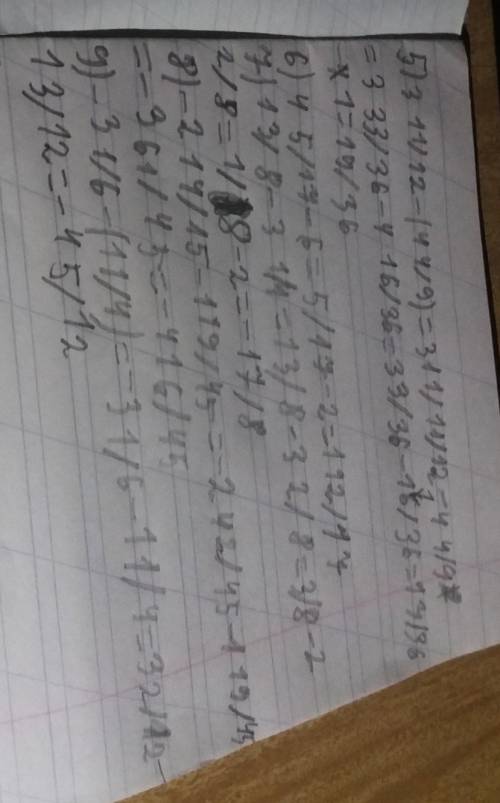 5) 3 11/12 - (4 4/9) = 3 11/12 - 4 4/9 =
= 3 33/36 - 4 16/36 = 33/36 - 16/36 = 17/36
- 1 = 19/36
6) 4 5/17 - 6 = 5/17 - 2 = 1 12/17
7) 1 3/8 - 3 1/4 = 1 3/8 - 3 2/8 = 3/8 - 2
2/8 = 1/8 - 2 = - 1 7/8
8) - 2 14/15 - 1 19/45 = - 2 42/45 - 1 19/45
= - 3 61/45 = - 4 16/45
9) - 3 1/6 - (1 1/4) = - 3 1/6 - 1 1/4 = 3 2/12 -
1 3/12 = - 4 5/12